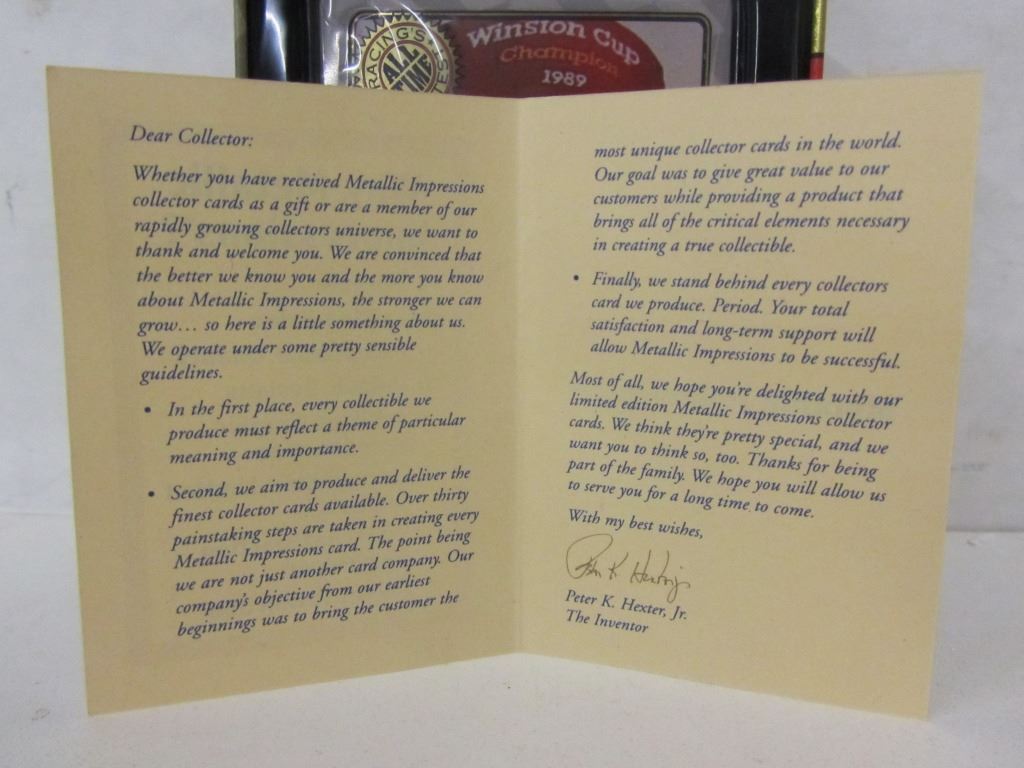 RACING'S
ALL
TIME
Winston Cup
Champion
1989
Dear Collector:
Whether you have received Metallic Impressions
collector cards as a gift or are a member of our
rapidly growing collectors universe, we want to
thank and welcome you. We are convinced that
the better we know you and the more you know
about Metallic Impressions, the stronger we can
grow… so here is a little something about us.
We operate under some pretty sensible
guidelines.
• In the first place, every collectible we
produce must reflect a theme of particular
meaning and importance.
• Second, we aim to produce and deliver the
finest collector cards available. Over thirty
painstaking steps are taken in creating every
Metallic Impressions card. The point being
we are not just another card company. Our
company's objective from our earliest
beginnings was to bring the customer the
most unique collector cards in the world.
Our goal was to give great value to our
customers while providing a product that
brings all of the critical elements necessary
in creating a true collectible.
• Finally, we stand behind every collectors
card we produce. Period. Your total
satisfaction and long-term support will
allow Metallic Impressions to be successful.
Most of all, we hope you're delighted with our
limited edition Metallic Impressions collector
cards. We think they're pretty special, and we
want you to think so, too. Thanks for being
part of the family. We hope you will allow us
to serve you for a long time to come.
With my best wishes,
Peter K. Hexter, Jr.
The Inventor